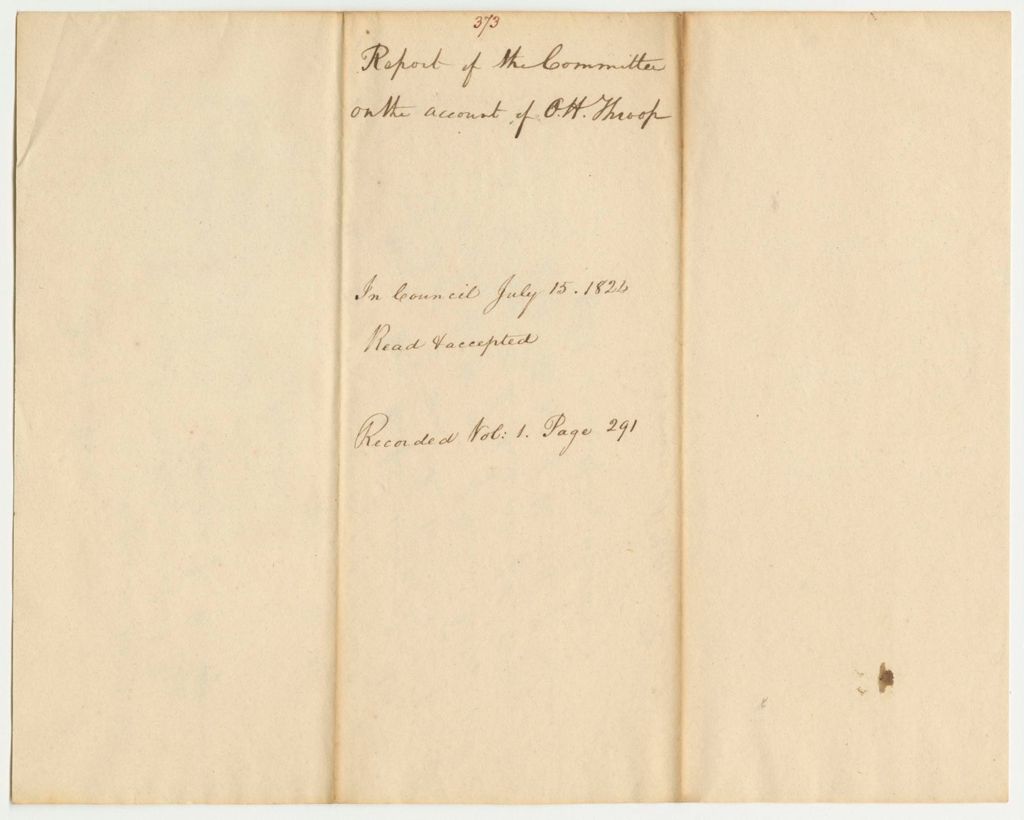 373
Report of the Committee
on the account of O.H. Throop
In Council July 15. 1824
Read & accepted
Recorded Vol: 1. Page 291